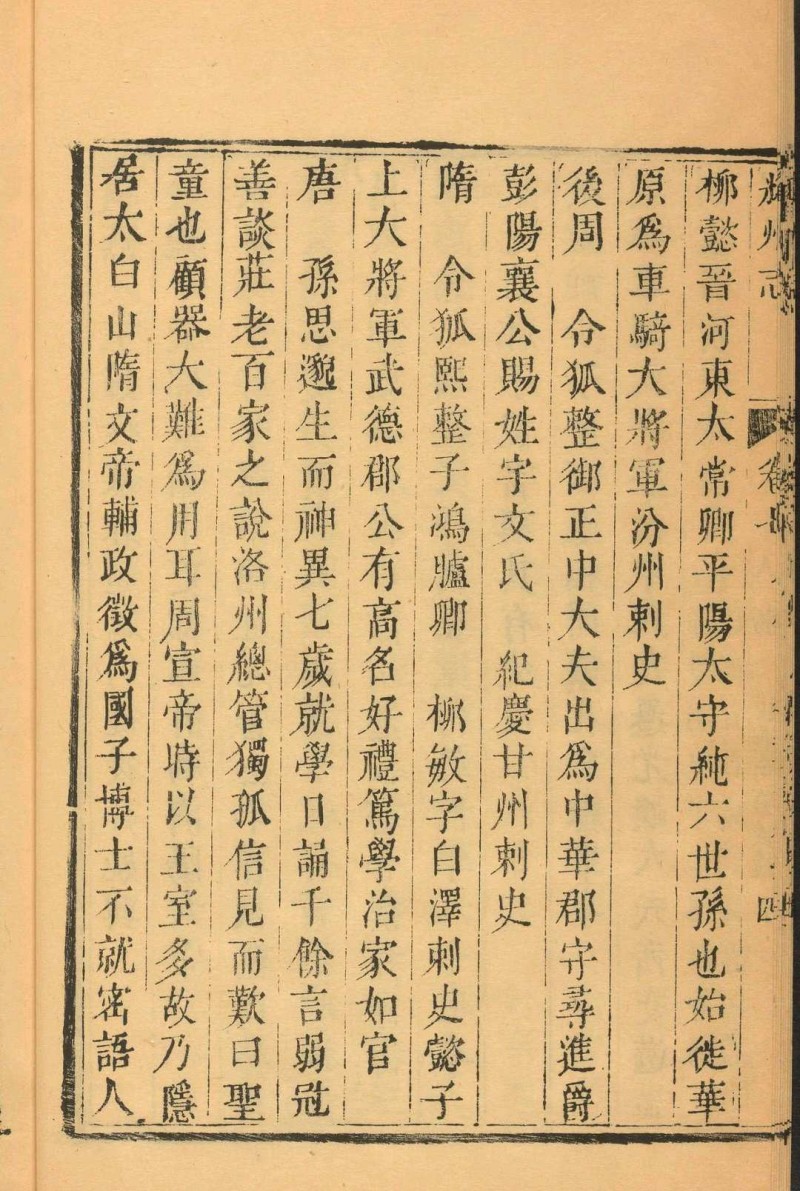 州志 卷 四
柳懿晉河東太常卿平陽太守純六世孫也始徙華
原爲車騎大將軍汾州刺史
後周 令狐整御正中大夫出爲中華郡守尋進爵
彭陽襄公賜姓宇文氏 紀慶甘州刺史
隋 令狐熙整子鴻臚卿 柳敏字白澤刺史懿子
上大將軍武德郡公有高名好禮篤學治家如官
唐 孫思邈生而神異七歲就學日誦千餘言弱冠
善談莊老百家之說洛州總管獨孤信見而歎曰聖
童也顧器大難爲用耳周宣帝時以王室多故乃隱
居太白山隋文帝輔政徵爲國子博士不就密語人